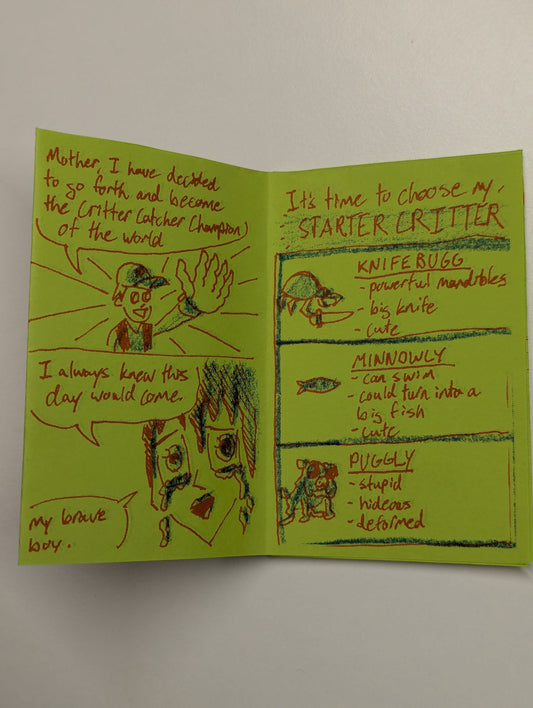 Mother, I have decided
to go forth and become
the Critter Catcher Champion
of the world
I always knew this
day would come.
my brave
boy.
It's time to choose my
STARTER CRITTER
KNIFEBUGG
- powerful mandibles
- big knife
- cute
MINNOWLY
- can swim
- could turn into a
big fish
- cute
PUGGLY
- stupid
- hideous
- deformed